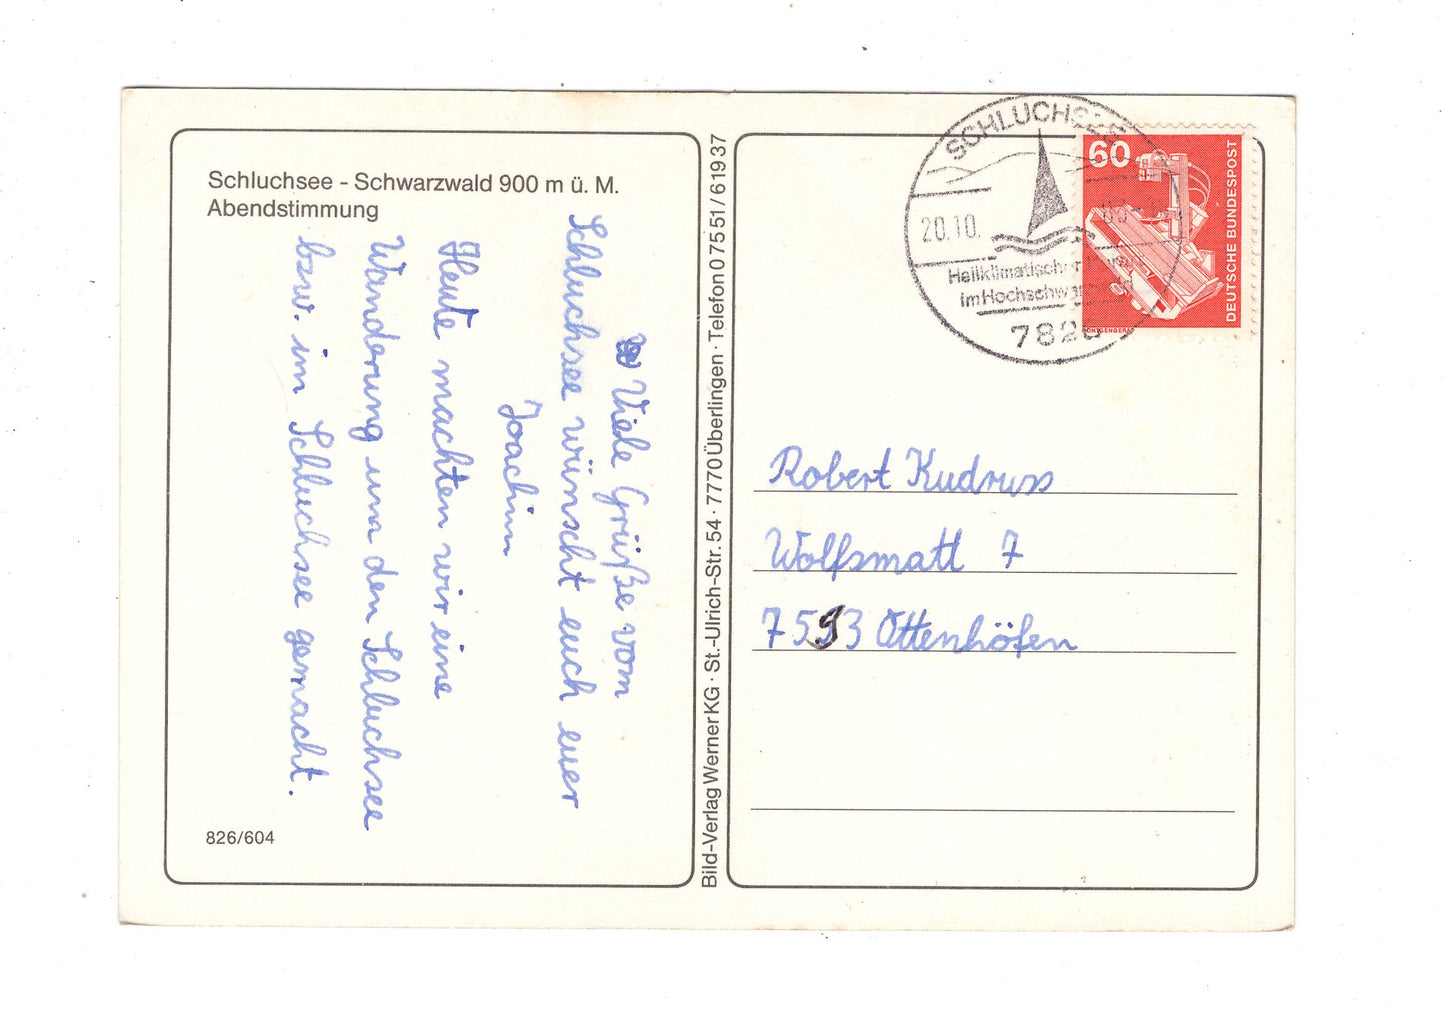 Schluchsee - Schwarzwald 900 m ü. M.
Abendstimmung
Viele Grüße vom
Schluchsee wünscht euch euer
Joachim
Heute machten wir eine
Wanderung um den Schluchsee
bzw. im Schluchsee gemacht.
826/604
Bild-Verlag Werner KG · St.-Ulrich-Str. 54 · 7770 Überlingen · Telefon 0 75 51 / 6 19 37
SCHLUCHSEE
20.10.
Heilklimatischer
im Hochschw
782
60
DEUTSCHE BUNDESPOST
RÖNTGENGERÄT
Robert Kudruss
Wolfsmatt 7
7593 Ottenhöfen